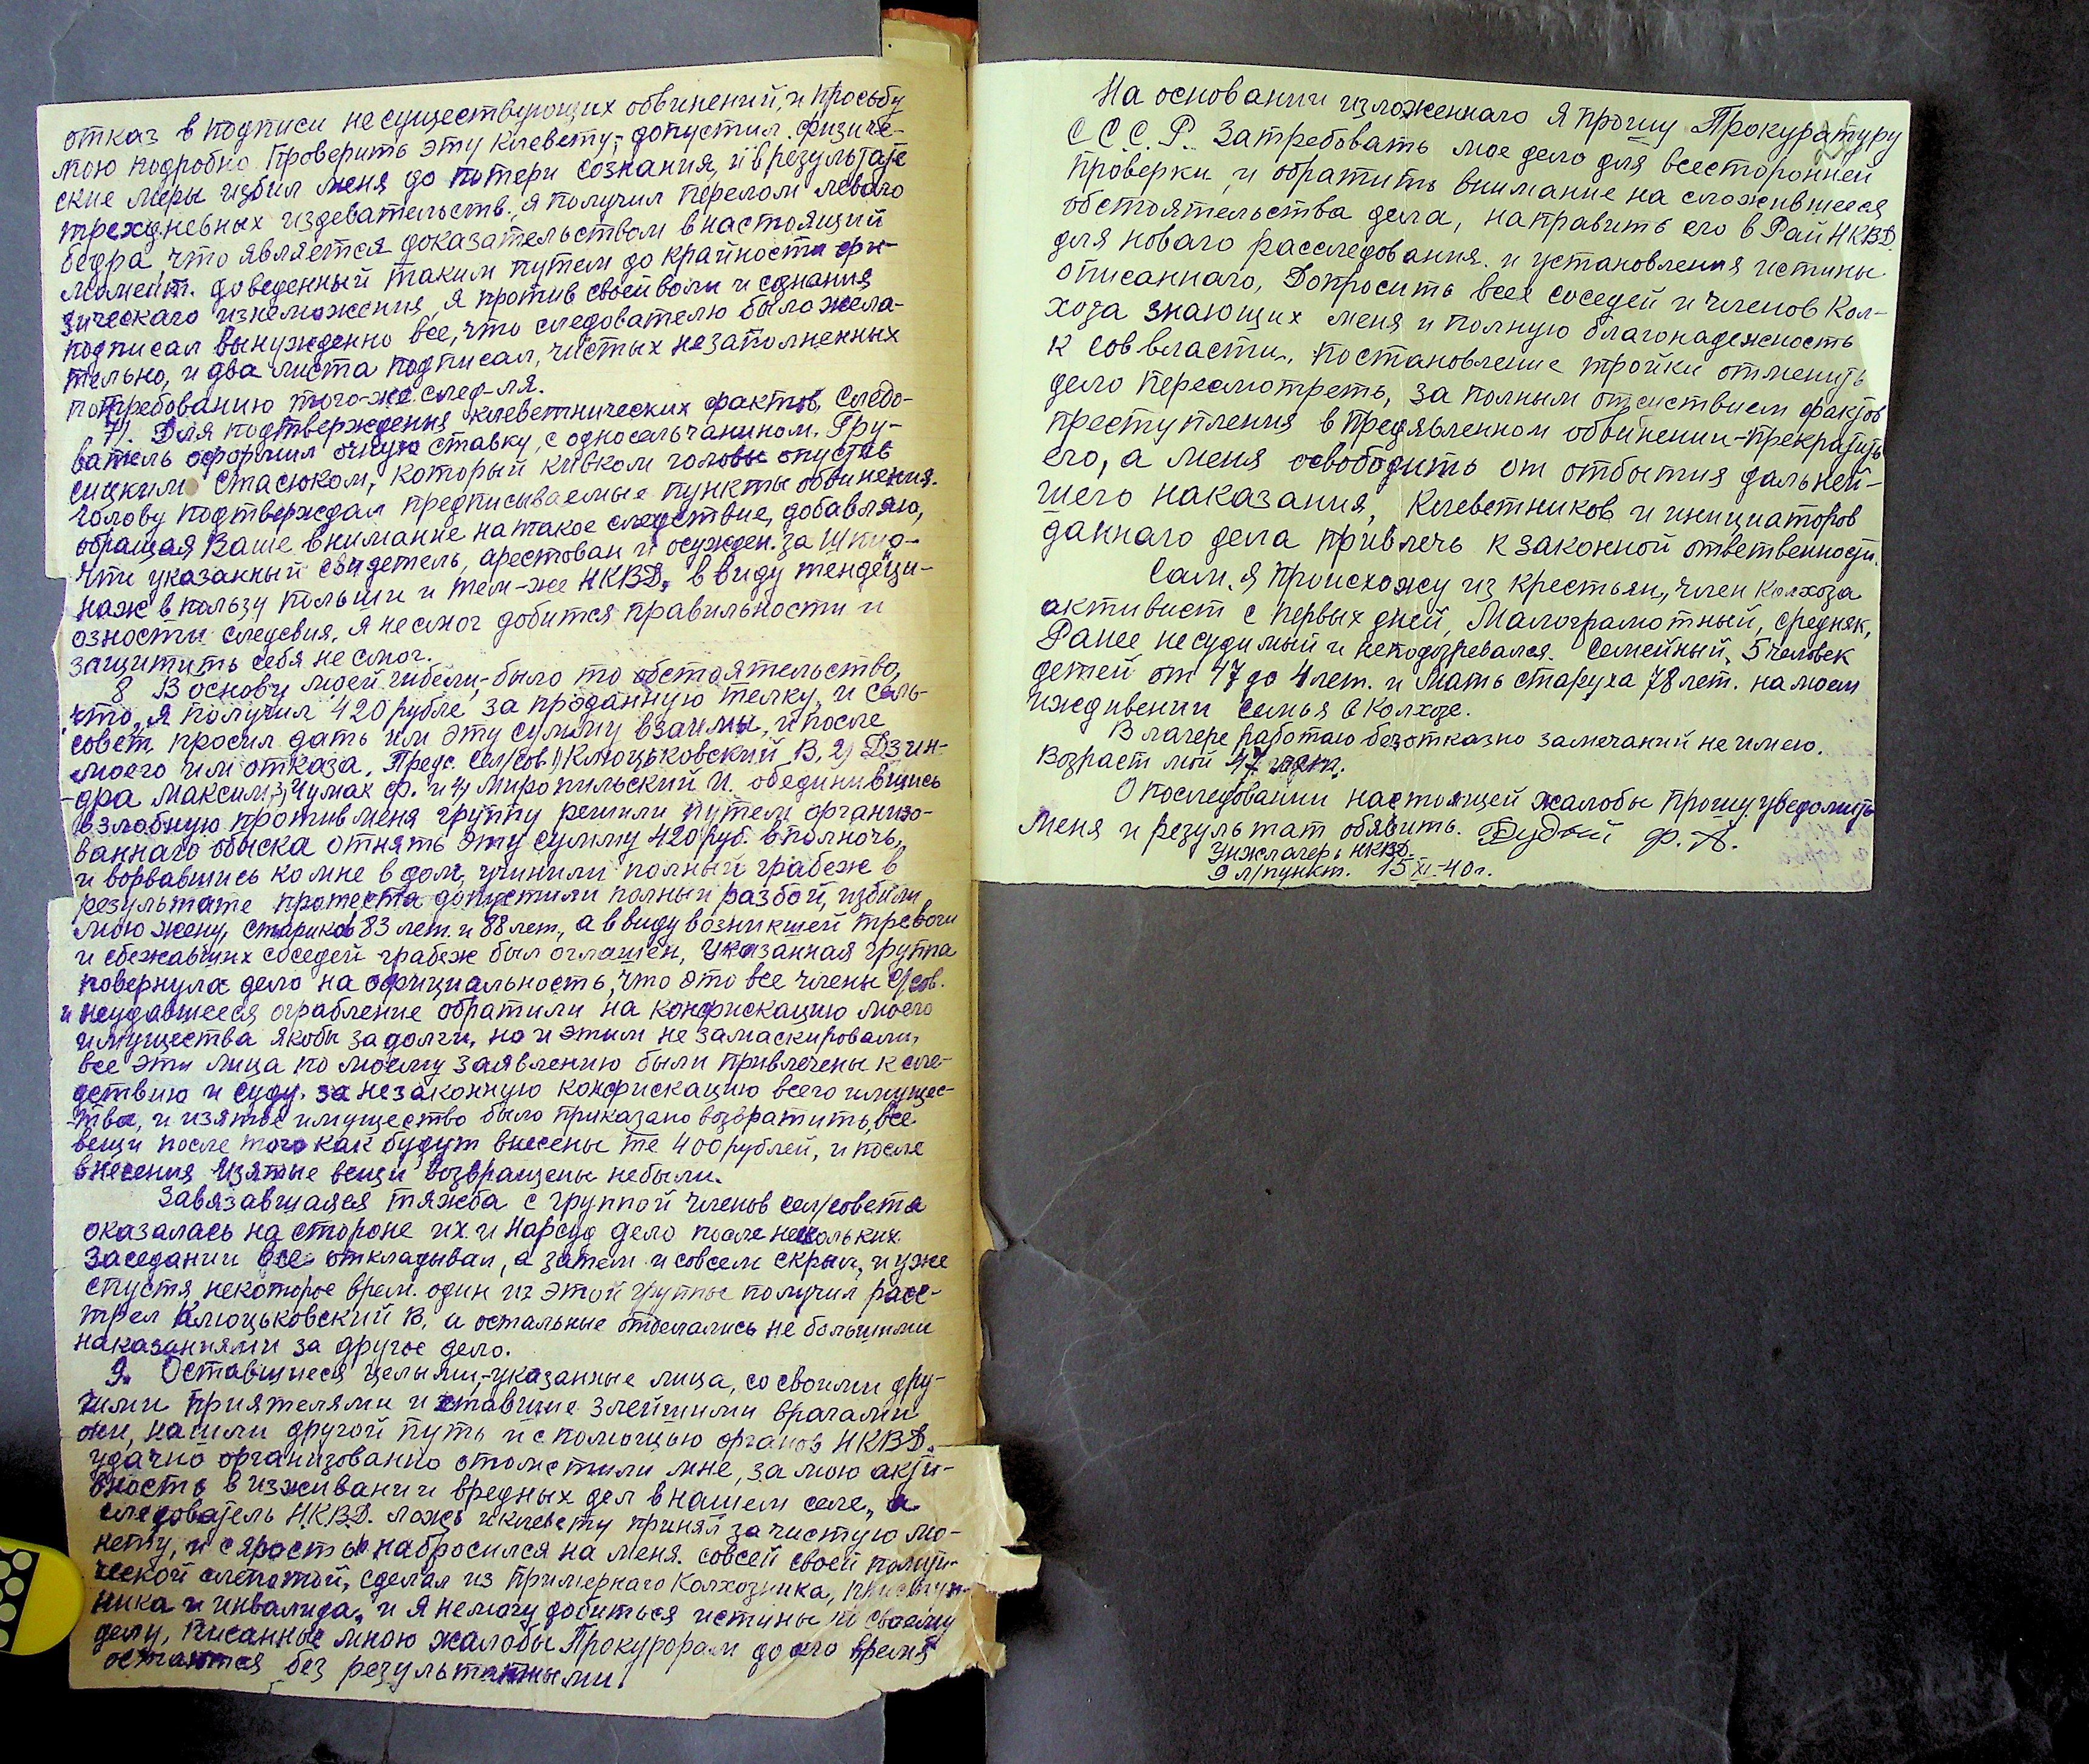 отказ в подписи несуществующих обвинений, и просьбу
мою подробно проверить эту клевету,- допустил физиче-
ские меры избил меня до потери сознания, и в результате
трехдневных издевательств, я получил перелом леваго
бедра, что является доказательством в настоящий
момент. доведенный таким путем до крайности фи-
зическаго изнеможения, я против своей воли и сознания
подписал вынужденно все, что следователю было жела-
тельно, и два листа подписал, чистых незаполненных
потребованию того-же след-ля.
7). Для подтверждения клеветнических фактов, следо-
ватель оформил очную ставку, с односельчанином. Гру-
сицким Стасюком, который кивком головы опустив
голову подтверждал предписываемые пункты обвинения.
обращая Ваше внимание на такое следствие, добавляю,
что указанный свидетель, арестован и осужден. за шпио-
наж в пользу польши и тем-же НКВД. в виду тендеци-
озности следсвия, я не смог добится правильности и
защитить себя не смог.
8 В основу моей гибели,- было то обстоятельство,
что, я получил 420 рубле за проданную телку, и сель-
совет просил дать им эту сумму взаимы, и после
моего им отказа. Предс. Сел/сов. 1) Клюцьковский В, 2) Дзин-
-дра Максим, 3) Чумак Ф. и 4) Миропильский И. обединившись
в злобную против меня группу решили путем организо-
ваннаго обыска отнять эту сумму 420 руб. в полночь,
и ворвавшись ко мне в дом, учинили полный грабеж в
результате протеста допустили полный разбой, избили
мою жену, стариков 83 лет. и 88 лет., а в виду возникшей тревоги
и сбежавших соседей грабеж был оглашен, указанная группа
повернула дело на официальность, что это все члены С/сов.
и неудавшееся ограбление обратили на конфискацию моего
имущества якобы за долги, но и этим не замаскировали,
все эти лица по моему заявлению были привлечены к сле-
дствию и суду. за незаконную конфискацию всего имущес-
-тва, и изятое имущество было приказано возвратить, все
вещи после того как будут внесены те 400 рублей, и после
внесения изятые вещи возвращены небыли.
Завязавшаяся тяжба с группой членов сел/совета
оказалась на стороне их. и Нарсуд дело после нескольких
заседании все откладывал, а затем и совсем скрыл, и уже
спустя некоторое врем. один из этой группы получил расс-
трел Клюцьковский В. а остальные отделались не большими
наказаниями за другое дело.
9. Оставшиеся целыми,-указанные лица, со своими дру-
гими приятелями и ставшие злейшими врагами
они, нашли другой путь и с помощью органов НКВД.
удачно организованно отомстили мне, за мою акти-
вность в изживании вредных дел в нашем селе, а
следователь Н.К.В.Д. ложь и клевету принял за чистую мо-
нету, и с яростью набросился на меня. совсей своей полити-
ческой слепотой, сделал из примернаго Колхозника, преступ-
ника и инвалида, и я немогу добиться истины по своему
делу, Писанные мною жалобы Прокурорам до сего время
остаются без результатными.
На основании изложеннаго Я прошу Прокуратуру
С.С.С.Р. Затребовать мое дело для всесторонней
проверки, и обратить внимание на сложившееся
обстоятельства дела, направить его в РайНКВД
для новаго расследования. и установления истины
описаннаго, Допросить всех соседей и членов Кол-
хоза знающих меня и полную благонадежность
к соввласти. постановление тройки отменить
дело пересмотреть, за полным отсутствием фактов
преступления в предявленном обвинении-прекратить
его, а меня освободить от отбытия дальней-
шего наказания, Клеветников и инициаторов
даннаго дела привлечь к законной ответственности.
Сам, я происхожу из крестьян, член Колхоза
активист с первых дней, Малограмотный, средняк,
Ранее, не судимый и неподозревался. Семейный, 5 человек
детей от 17 до 4 лет. и Мать старуха 78 лет. на моем
иждивении семья в Колхозе.
В лагере работаю безотказно замечаний не имею.
Возраст мой 47 лет.
О последовании настоящей жалобы прошу уведомить
меня и результат обявить. Дудой Ф. А.
Унжлагерь НКВД
9 л/пункт. 15 XI-40 г.